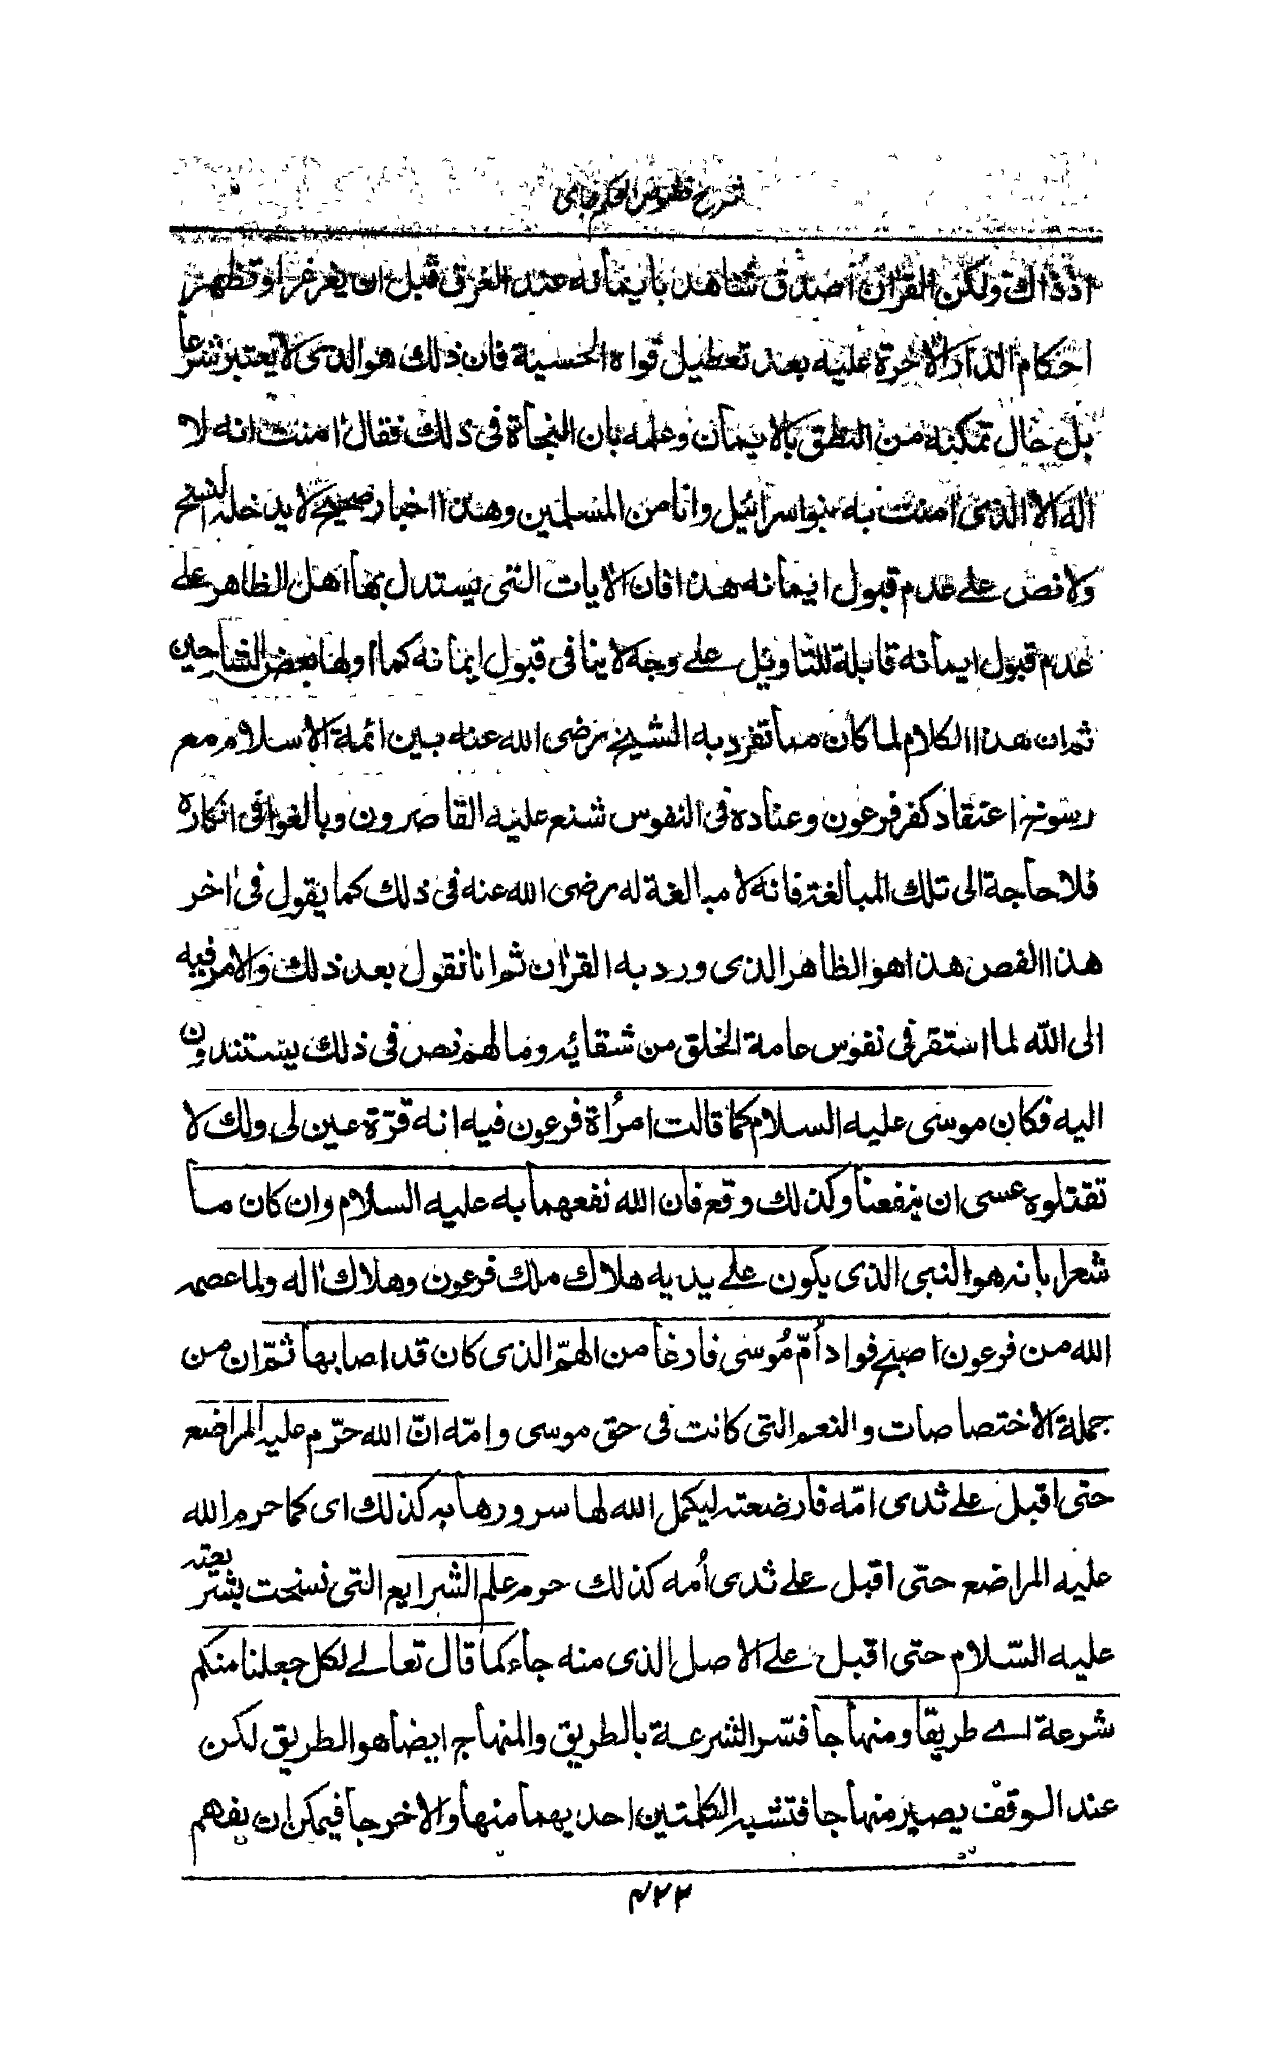 شرح فصوص الحكم جامى
اذ ذاك ولكن القرآن اصدق شاهد بايمانه عند الغرق قبل ان يغرغر او تظهر
احكام الدار الآخرة عليه بعد تعطيل قواه الحسية فان ذلك هو الذى لا يعتبر شرعا
بل حال تمكنه من النطق بالايمان وعلمه بان النجاة فى ذلك فقال اٰمنت انه لا
اله الا الذى اٰمنت به بنواسرائيل وانا من المسلمين وهذا اخبار صحيح لا يدخله النسخ
ولا نص على عدم قبول ايمانه هذا فان الاٰيات التى يستدل بها اهل الظاهر على
عدم قبول ايمانه قابلة للتاويل على وجه لا ينافى قبول ايمانه كما اولها بعض الشارحين
ثم ان هذا الكلام لما كان مما تفرد به الشيخ رضى الله عنه بين ائمة الاسلام مع
رسوخ اعتقاد كفر فرعون وعناده فى النفوس شنع عليه القاصرون وبالغوا فى انكاره
فلا حاجة الى تلك المبالغة فانه لا مبالغة له رضى الله عنه فى ذلك كما يقول فى اٰخر
هذا الفص هذا هو الظاهر الذى ورد به القراٰن ثم انا نقول بعد ذلك والامر فيه
الى الله لما استقر فى نفوس عامة الخلق من شقائه وما لهم نص فى ذلك يستندون
اليه فكان موسى عليه السلام كما قالت امرأة فرعون فيه انه قرّة عين لى ولك لا
تقتلوه عسى ان ينفعنا وكذلك وقع فان الله نفعهما به عليه السلام وان كان ما
شعرا بانه هو النبى الذى يكون على يديه هلاك ملك فرعون وهلاك اٰله ولما عصمه
الله من فرعون اصبح فواد اُمّ مُوسى فارغا من الهمّ الذى كان قد اصابها ثمّ ان من
جملة الاختصاصات والنعم التى كانت فى حق موسى وامّه انّ الله حرّم عليه المراضع
حتى اقبل على ثدى امّه فارضعته ليكمل الله لها سرورها به كذلك اى كما حرم الله
عليه المراضع حتى اقبل على ثدى اُمه كذلك حرم علم الشرايع التى نسخت بشريعته
عليه السّلام حتى اقبل على الاصل الذى منه جاء كما قال تعالى لكل جعلنا منكم
شرعة اے طريقا ومنهاجا فسّر الشرعة بالطريق والمنهاج ايضا هو الطريق لكن
عند الوقف يصير منهاجا فتشير الكلمتين احديهما منها والاخر جا فيمكن ان يفهم
٤٢٢